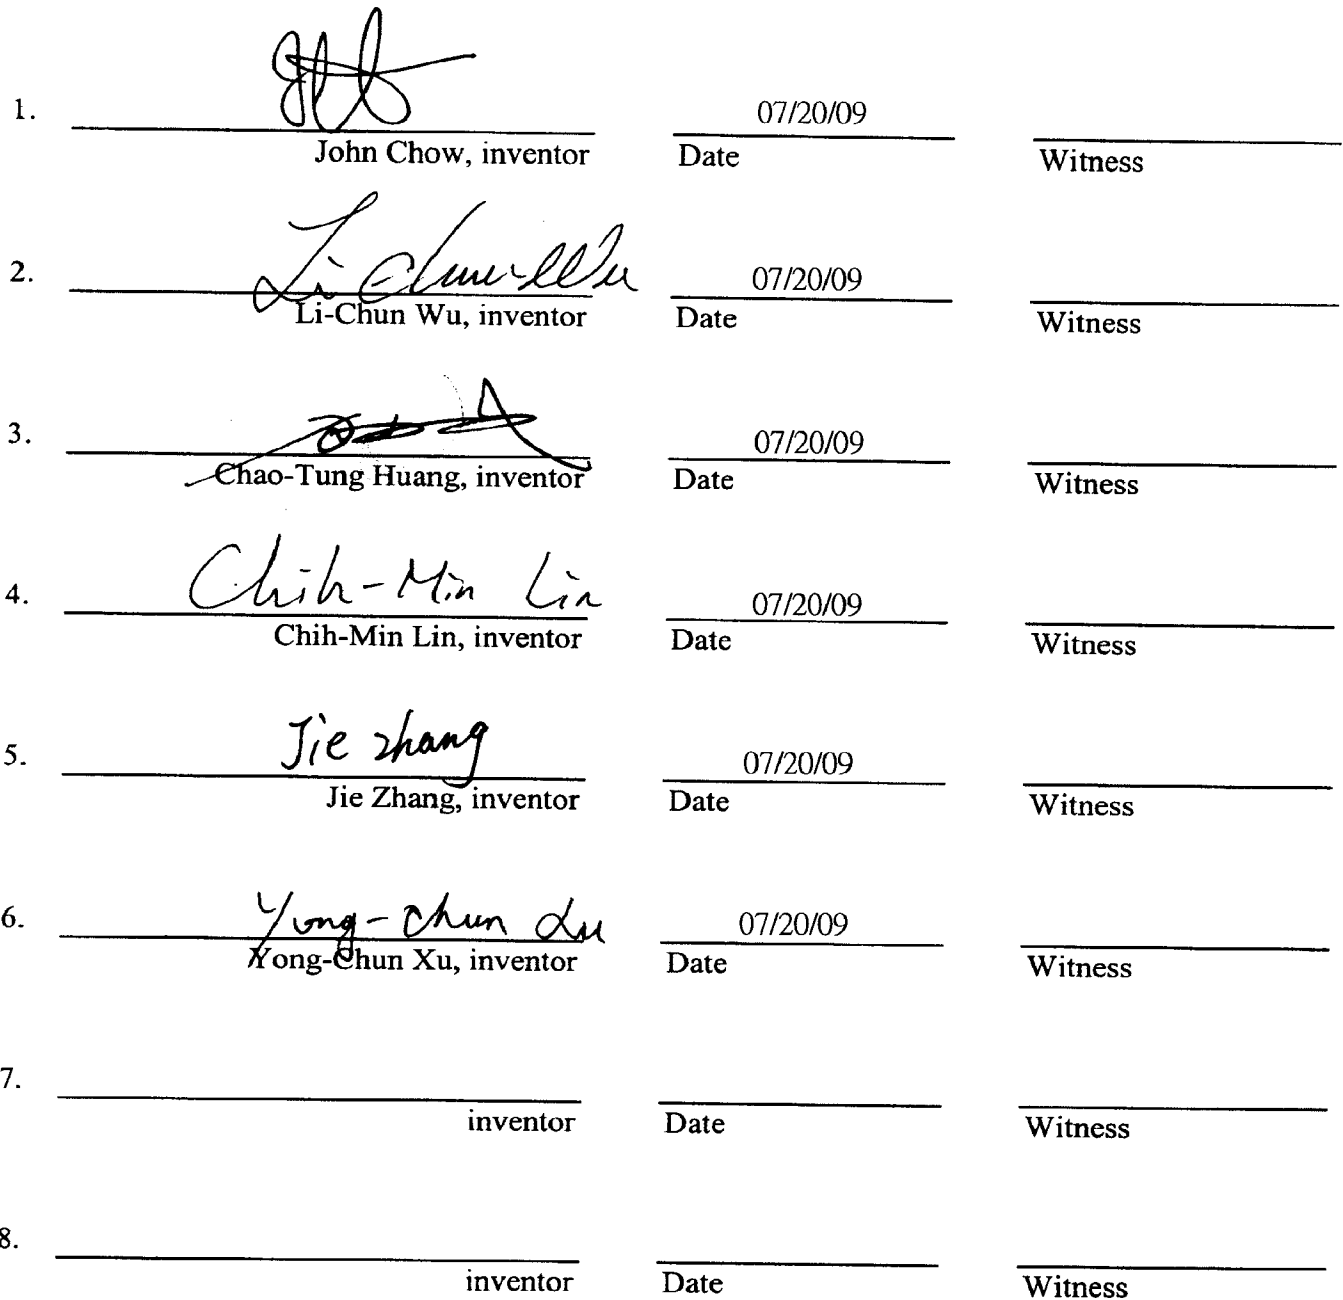 1. 07/20/09
John Chow, inventor Date Witness
2. Li-Chun Wu 07/20/09
Li-Chun Wu, inventor Date Witness
3. 07/20/09
Chao-Tung Huang, inventor Date Witness
4. Chih-Min Lin 07/20/09
Chih-Min Lin, inventor Date Witness
5. Jie zhang 07/20/09
Jie Zhang, inventor Date Witness
6. Yong-Chun Xu 07/20/09
Yong-Chun Xu, inventor Date Witness
7.
inventor Date Witness
8.
inventor Date Witness